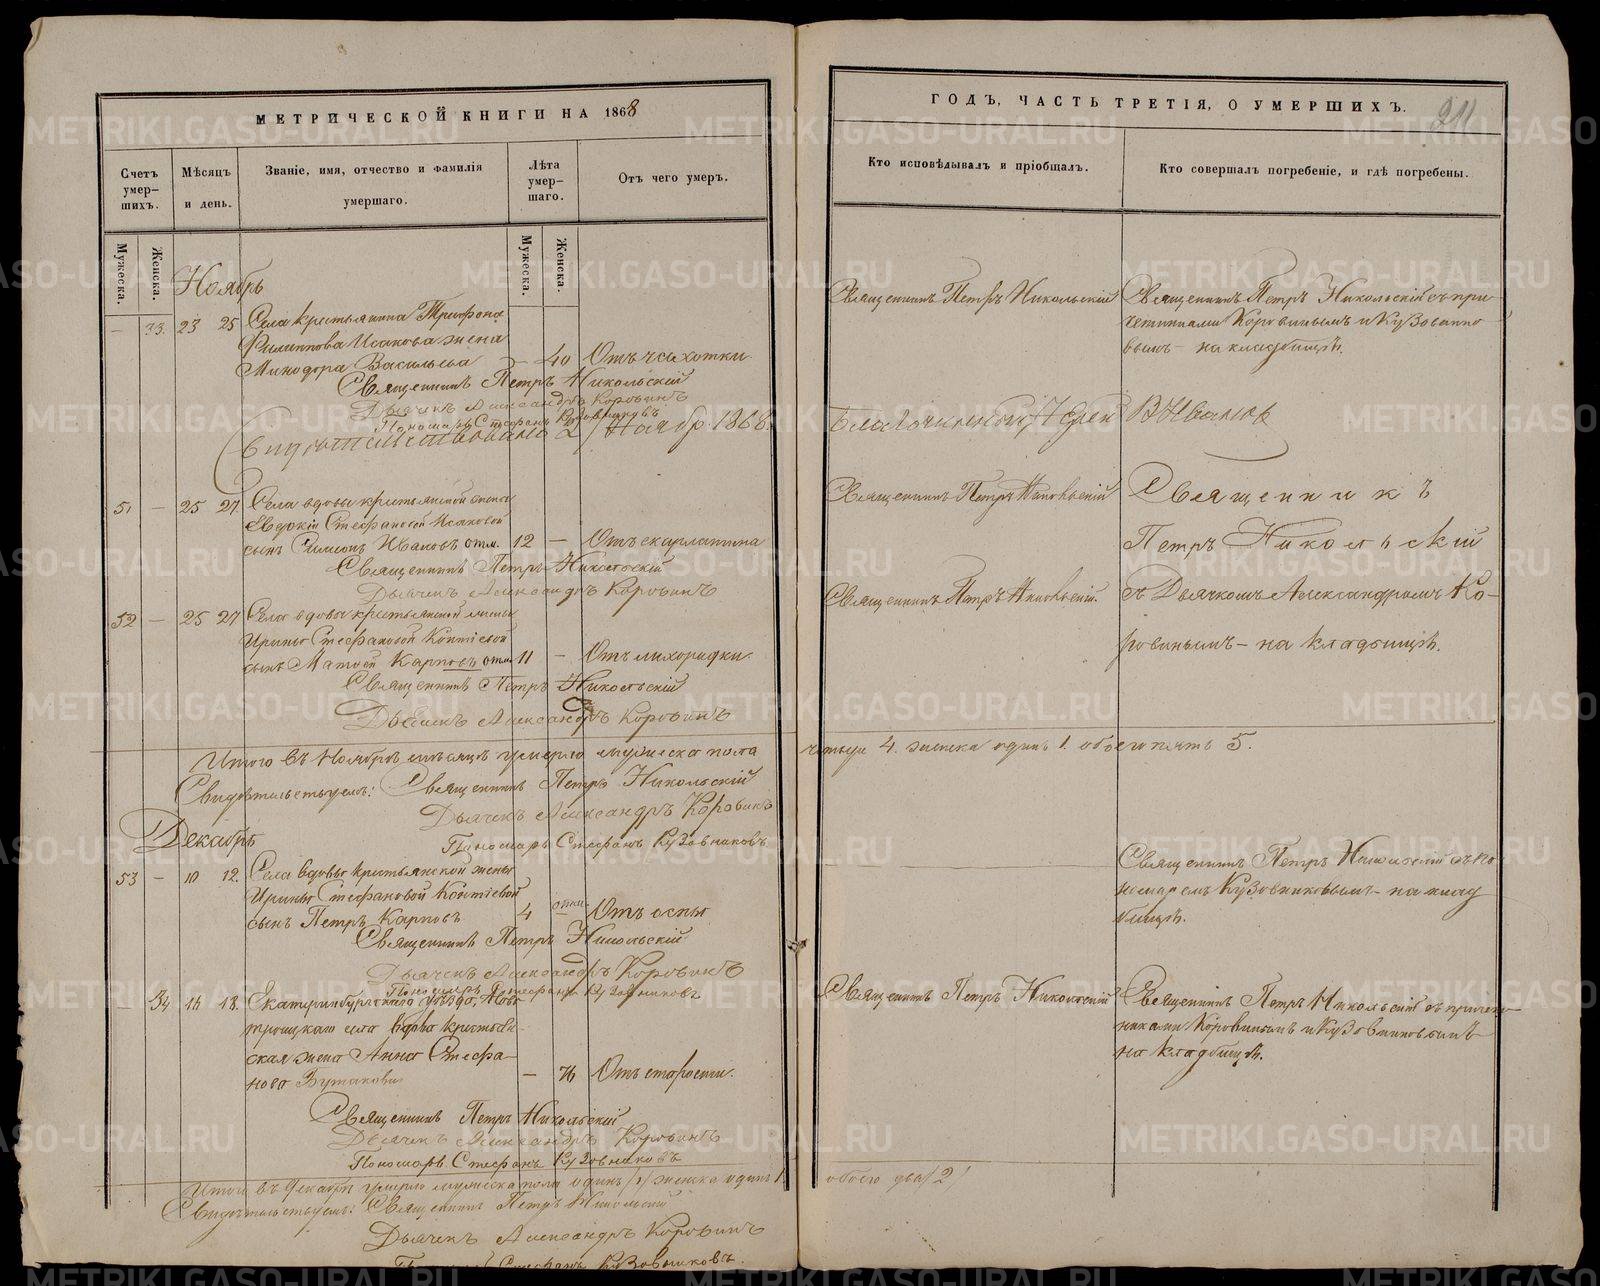 МЕТРИЧЕСКОЙ КНИГИ НА 1868
Счетъ умер-
шихъ.
Мѣсяцъ
и день.
Званіе, имя, отчество и фамилія
умершаго.
Лѣта
умер-
шаго.
Отъ чего умеръ.
Мужеска.
Женска.
Мужеска.
Женска.
Ноябрь
— 33. 23 25 Села крестьянина Трифона
Филиппова Исакова жена
Минодора Васильева — 40 Отъ чахотки
Священникъ Петръ Никольскій
Дьячекъ Александръ Коровинъ
Пономарь Стефанъ Кузовниковъ
Ноябр. 1868.
51 — 25 27 Села вдовы крестьянской жены
Евдокіи Стефановой Исаковой
сынъ Симеонъ Ивановъ отм. 12 — Отъ скарлатина
Священникъ Петръ Никольскій
Дьячекъ Александръ Коровинъ
52 — 25 27 Села вдовы крестьянской жены
Ирины Стефановой Коптіевой
сынъ Матвей Карповъ отм. 11 — Отъ лихорадки.
Священникъ Петръ Никольскій
Дьячекъ Александръ Коровинъ
Итого въ Ноябрѣ месяцѣ умерло мужеска пола
Свидѣтельствуемъ: Священникъ Петръ Никольскій
Дьячекъ Александръ Коровинъ
Пономарь Стефанъ Кузовниковъ
Декабрь
53 — 10 12. Села вдовы крестьянской жены
Ирины Стефановой Коптіевой
сынъ Петръ Карповъ 4 Отъ оспы
Священникъ Петръ Никольскій
Дьячекъ Александръ Коровинъ
Пономарь Стефанъ Кузовниковъ
— 34 18. Екатеринбургскаго уѣзда, Ново-
троицкаго села вдова крестьян-
ская жена Анна Стефа-
нова — 76 Отъ старости.
Священникъ Петръ Никольскій
Дьячекъ Александръ Коровинъ
Пономарь Стефанъ Кузовниковъ
Итого въ Декабрѣ умерло мужеска пола одинъ /1/ женска одинъ 1
Свидѣтельствуемъ: Священникъ Петръ Никольскій
Дьячекъ Александръ Коровинъ
Пономарь Стефанъ Кузовниковъ.
ГОДЪ, ЧАСТЬ ТРЕТІЯ, О УМЕРШИХЪ.
211
Кто исповѣдывалъ и пріобщалъ.
Кто совершалъ погребеніе, и гдѣ погребены.
Священникъ Петръ Никольскій
Священникъ Петръ Никольскій съ при-
четниками Коровинымъ и Кузовнико
вымъ — на кладбищѣ.
Благочинный Іерей В Ивановъ
Священникъ Петръ Никольскій
Священникъ
Петръ Никольскій
Священникъ Петръ Никольскій.
съ Дьячкомъ Александромъ Ко-
ровинымъ — на кладбищѣ.
четыре 4. женска одинъ 1. обоего пять 5.
Священникъ Петръ Никольскій съ по
номаремъ Кузовниковымъ — на клад
бищѣ.
Священникъ Петръ Никольскій
Священникъ Петръ Никольскій съ причет
никами Коровинымъ и Кузовниковымъ
на кладбищѣ.
обоего два /2/
METRIKI.GASO-URAL.RU